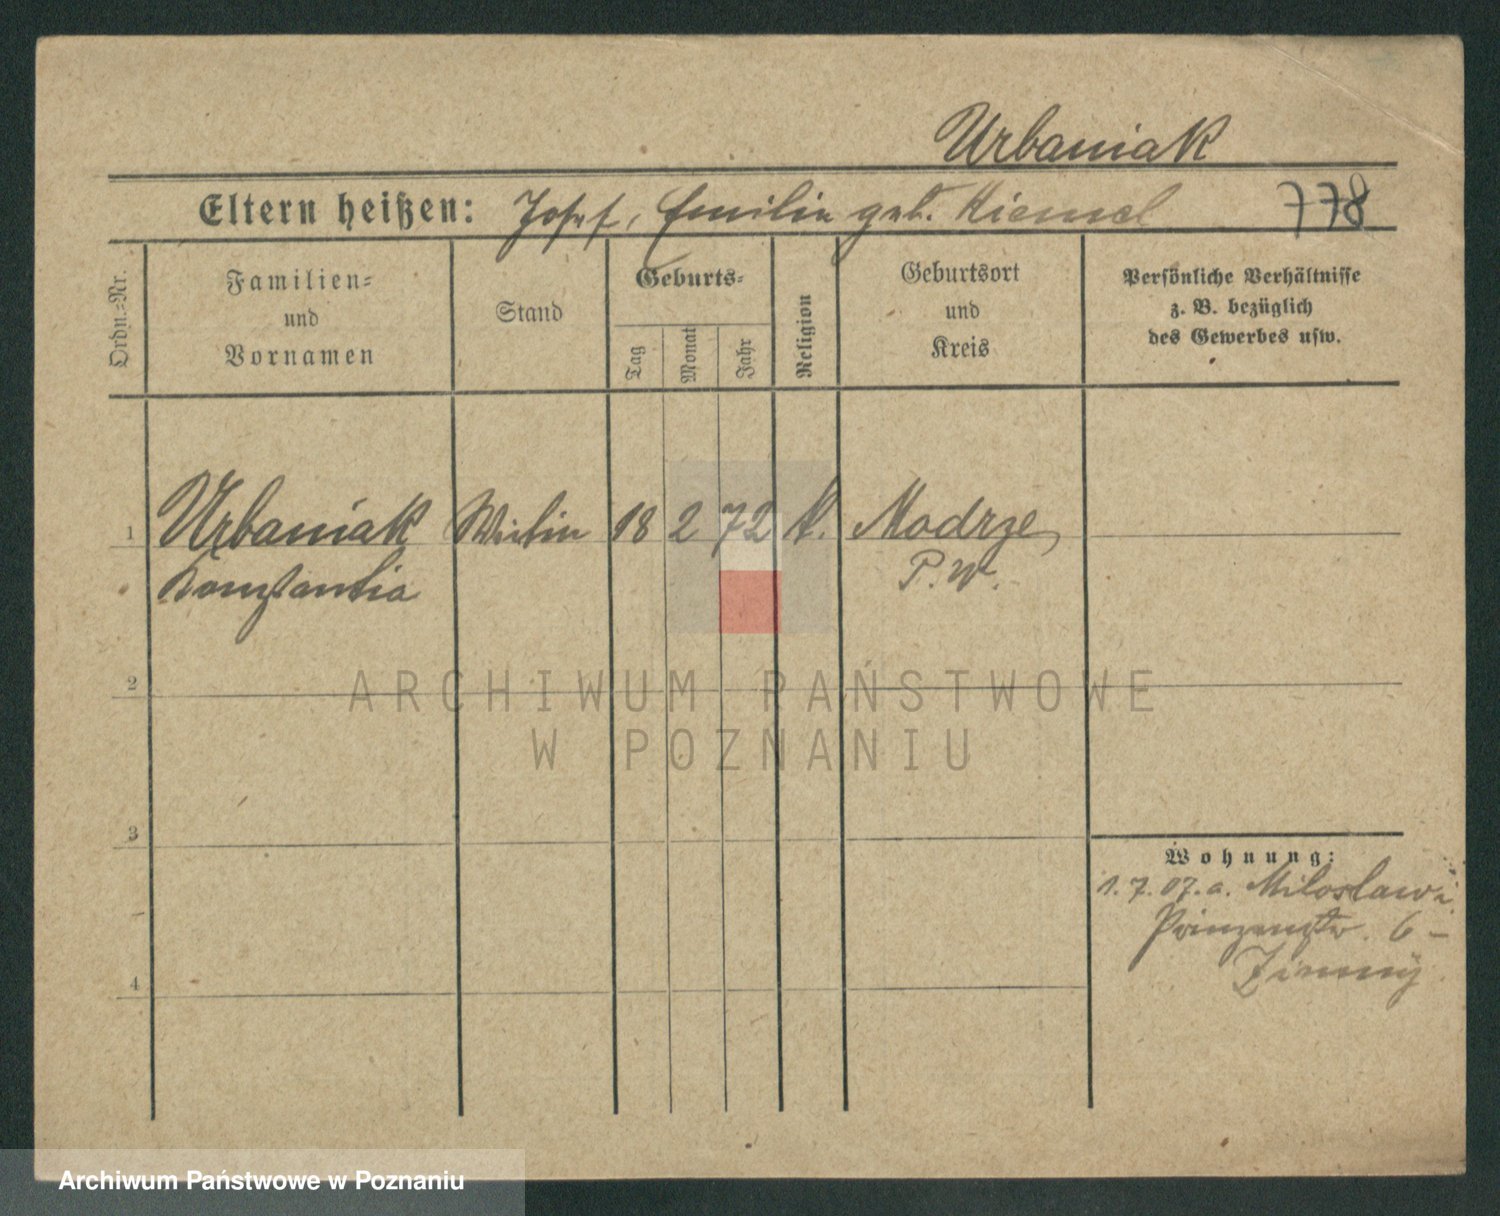 Urbaniak
Eltern heißen: Josef, Emilie geb. Kiemel 778
Ordn.-Nr.
Familien-
und
Vornamen
Stand
Geburts-
Tag
Monat
Jahr
Religion
Geburtsort
und
Kreis
Persönliche Verhältnisse
z. B. bezüglich
des Gewerbes usw.
1 Urbaniak 18 2 72 k. Modrze,
Konstantia P.W.
2
ARCHIWUM PAŃSTWOWE
W POZNANIU
3
Wohnung:
1.7.07. a. Miloslaw
Prinzenstr. 6 -
4
Archiwum Państwowe w Poznaniu